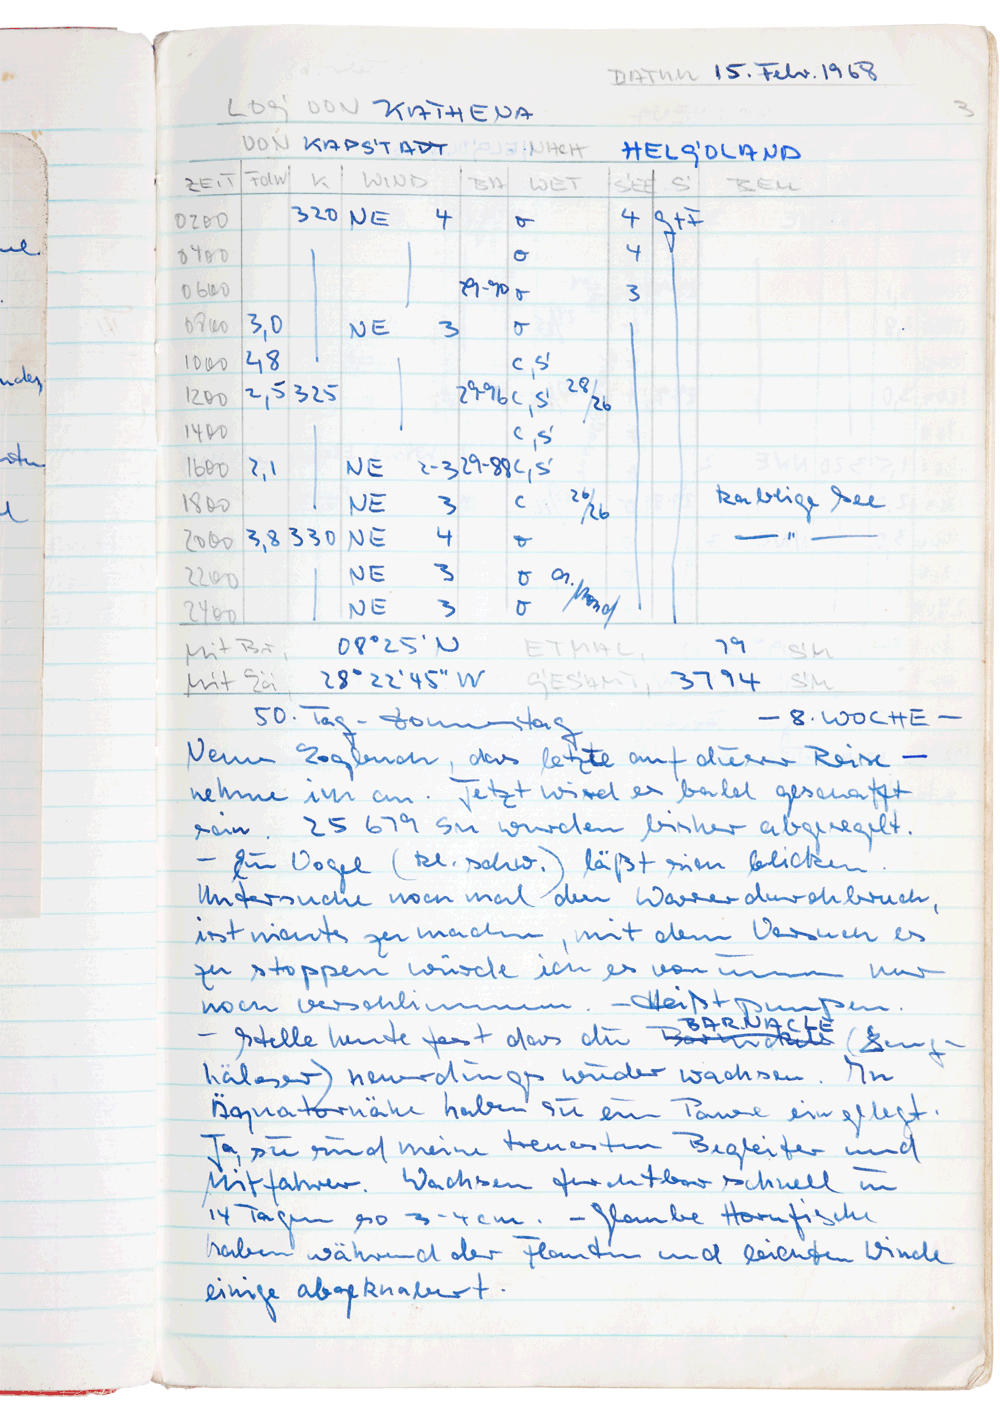 DATUM 15. Febr. 1968
3
LOG VON KATHENA
VON KAPSTADT NACH HELGOLAND
ZEIT Fdw K WIND BA WET SEE S BEM
0200 320 NE 4 σ 4 g+F
0400 σ 4
0600 29-90 σ 3
0800 3,0 NE 3 σ
1000 2,8 c,s
1200 2,5 325 29-96 c,s 28/26
1400 c,s
1600 2,1 NE 2-3 29-88 c,s
1800 NE 3 c 26/26 kabblige See
2000 3,8 330 NE 4 σ — " —
2200 NE 3 σ
2400 NE 3 σ
Mit Br, 08°25'N ETMAL, 79 SM
Mit Lä, 28°22'45" W GESAMT, 3794 SM
50. Tag - Donnerstag — 8. WOCHE —
Neues Logbuch, das letzte auf dieser Reise —
nehme ich an. Jetzt wird es bald geschafft
sein. 25 679 sm wurden bisher abgesegelt.
- Ein Vogel (kl. schw.) läßt sich blicken.
Untersuche noch mal den Wasserdurchbruch,
ist nichts zu machen, mit dem Versuch es
zu stoppen würde ich es vorm nur
noch verschlimmern. - Heißt pumpen.
- Stelle heute fest das die BARNACLE
hälser) neuerdings wieder wachsen. In
Äquatornähe haben sie ein Pause eingelegt.
Ja, sie sind meine treuesten Begleiter und
Mitfahrer. Wachsen furchtbar schnell in
14 Tagen so 3-4 cm. - Glaube Hornfische
haben während der Flauten und leichten Winde
einige abgeknabert.